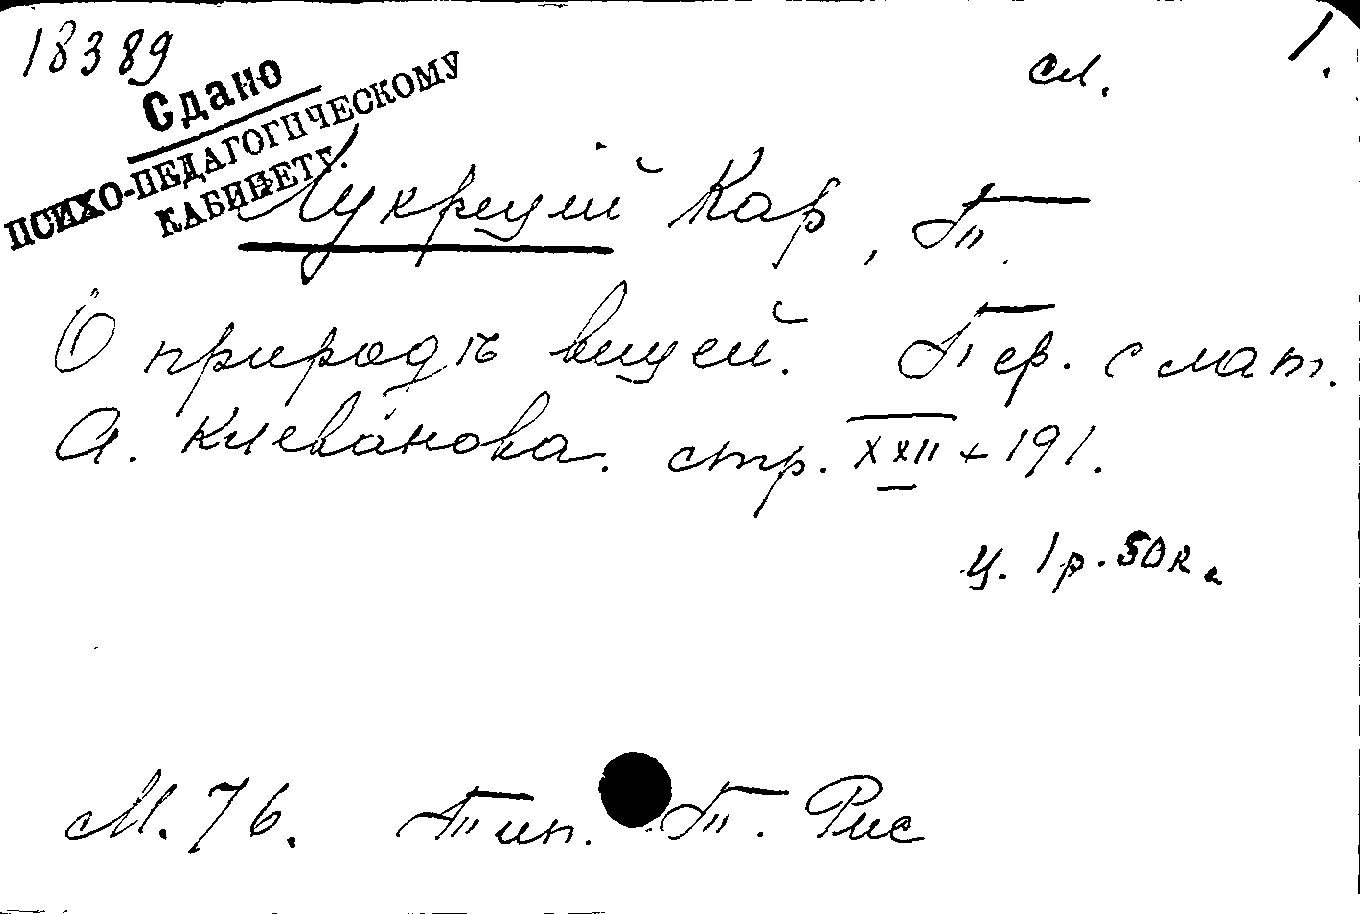 18389
1.
см.
Сдано
ПСИХО-ПЕДАГОГИЧЕСКОМУ
КАБИНЕТУ.
Лукреций Кар, Т.
О природѣ вещей. Пер. с лат.
А. Клеванова. стр. XXII + 191.
ц. 1 р. 50 к.
М. 76. Тип. Т. Рис